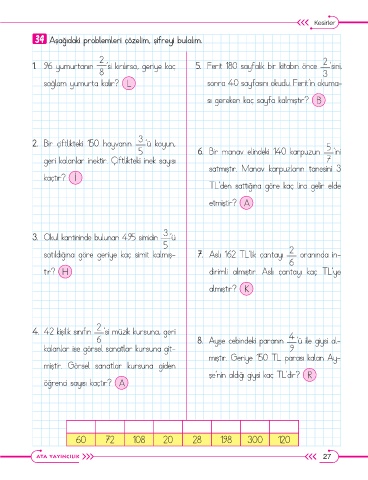 Kesirler
34 Aşağıdaki problemleri çözelim, şifreyi bulalım.
1. 96 yumurtanın 2/8 'si kırılırsa, geriye kaç
sağlam yumurta kalır? L
2. Bir çiftlikteki 150 hayvanın 3/5 'ü koyun,
geri kalanlar inektir. Çiftlikteki inek sayısı
kaçtır? I
3. Okul kantininde bulunan 495 simidin 3/5 'ü
satıldığına göre geriye kaç simit kalmış-
tır? H
4. 42 kişilik sınıfın 2/6 'si müzik kursuna, geri
kalanlar ise görsel sanatlar kursuna git-
miştir. Görsel sanatlar kursuna giden
öğrenci sayısı kaçtır? A
5. Ferit 180 sayfalık bir kitabın önce 2/3 sini,
sonra 40 sayfasını okudu. Ferit'in okuma-
sı gereken kaç sayfa kalmıştır? B
6. Bir manav elindeki 140 karpuzun 5/7 'ini
satmıştır. Manav karpuzların tanesini 3
TL'den sattığına göre kaç lira gelir elde
etmiştir? A
7. Aslı 162 TL'lik çantayı 2/6 oranında in-
dirimli almıştır. Aslı çantayı kaç TL'ye
almıştır? K
8. Ayşe cebindeki paranın 4/9 'ü ile giysi al-
mıştır. Geriye 150 TL parası kalan Ay-
şe'nin aldığı giysi kaç TL'dir? R
60 72 108 20 28 198 300 120
ATA YAYINCILIK
27